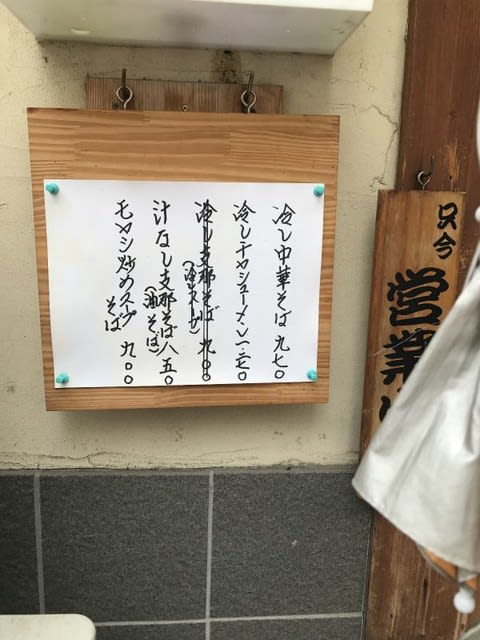 只今
営業
冷し中華そば 九七〇
冷しチャシューメン 一、三七〇
冷し支那そば 九〇〇
(冷スープ)
汁なし支那そば 八五〇
(油そば)
モヤシ炒めスープ 九〇〇
そば